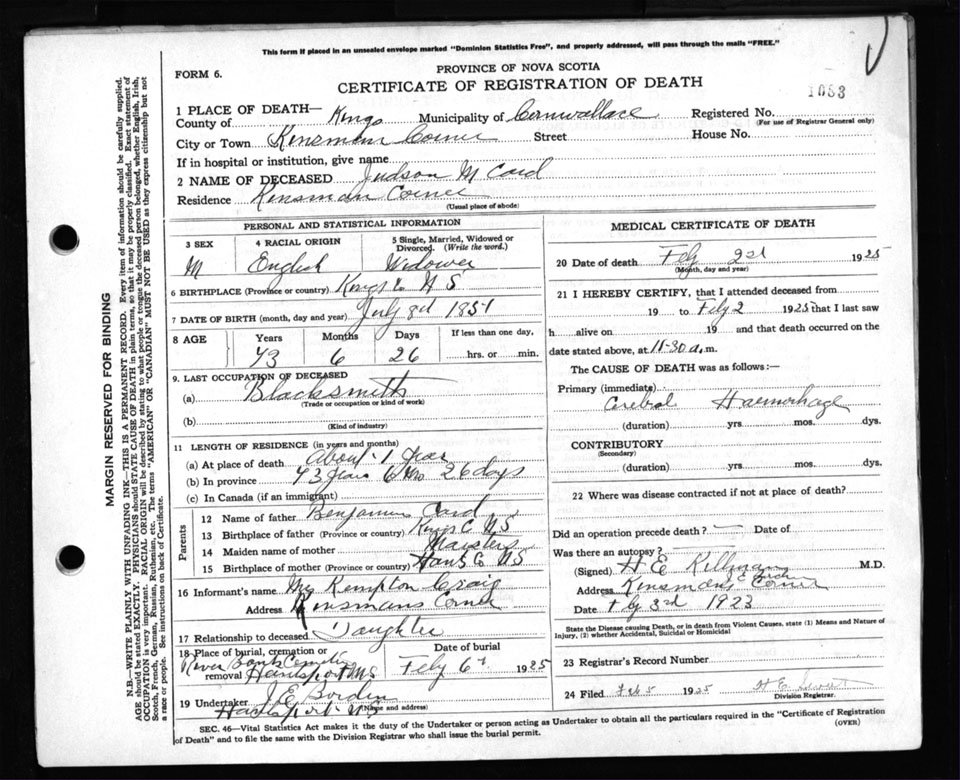 This form if placed in an unsealed envelope marked "Dominion Statistics Free", and properly addressed, will pass through the mails "FREE."
FORM 6.
PROVINCE OF NOVA SCOTIA
CERTIFICATE OF REGISTRATION OF DEATH
1083
1 PLACE OF DEATH—
County of Kings Municipality of Cornwallace Registered No.
(For use of Registrar General only)
City or Town Kinsman Corner Street House No.
If in hospital or institution, give name
2 NAME OF DECEASED Judson M Card
Residence Kinsman Corner
(Usual place of abode)
PERSONAL AND STATISTICAL INFORMATION
3 SEX 4 RACIAL ORIGIN 5 Single, Married, Widowed or Divorced. (Write the word.)
M English Widower
6 BIRTHPLACE (Province or country) Kings Co N S
7 DATE OF BIRTH (month, day and year) July 8d 1851
8 AGE Years Months Days If less than one day,
73 6 26 hrs. or min.
9. LAST OCCUPATION OF DECEASED
(a) Blacksmith
(Trade or occupation or kind of work)
(b)
(Kind of industry)
11 LENGTH OF RESIDENCE (in years and months)
(a) At place of death About 1 year
(b) In province 73 years 6 Mo 26 days
(c) In Canada (if an immigrant)
Parents
12 Name of father Benjamin Card
13 Birthplace of father (Province or country) Kings C NS
14 Maiden name of mother
15 Birthplace of mother (Province or country) Hants Co NS
16 Informant's name Mrs Kempton Craig
Address Kinsmans Corner
17 Relationship to deceased Daughter
18 Place of burial, cremation or removal Date of burial
River Bank Hantsport NS Feby 6th 1925
19 Undertaker J E Borden
(Name and address)
Hantsport NS
MEDICAL CERTIFICATE OF DEATH
20 Date of death Feby 2nd 1925
(Month, day and year)
21 I HEREBY CERTIFY, that I attended deceased from
19 to Feby 2 1925 that I last saw
h alive on 19 and that death occurred on
date stated above, at 11-30 a.m.
The CAUSE OF DEATH was as follows:—
Primary (immediate)
Cerebral Haemorhage
(duration) yrs. mos. dys.
CONTRIBUTORY
(Secondary)
(duration) yrs. mos. dys.
22 Where was disease contracted if not at place of death?
Did an operation precede death? — Date of
Was there an autopsy?
(Signed) H E M.D.
Address Kinsmans Corner
Date Feby 3rd 1923
State the Disease causing Death, or in death from Violent Causes, state (1) Means and Nature of Injury, (2) whether Accidental, Suicidal or Homicidal
23 Registrar's Record Number
24 Filed Feb 5 1925 H E
Division Registrar.
SEC. 46—Vital Statistics Act makes it the duty of the Undertaker or person acting as Undertaker to obtain all the particulars required in the "Certificate of Registration
of Death" and to file the same with the Division Registrar who shall issue the burial permit. (OVER)
MARGIN RESERVED FOR BINDING
N.B.—WRITE PLAINLY WITH UNFADING INK—THIS IS A PERMANENT RECORD. Every item of information should be carefully supplied.
AGE should be stated EXACTLY. PHYSICIANS should STATE CAUSE OF DEATH in plain terms, so that it may be properly classified. Exact statement of
OCCUPATION is very important. RACIAL ORIGIN will be described by stating to what people or tongue the deceased person belonged, whether English, Irish,
Scotch, French, German, Russian, Ruthenian, etc. The terms "AMERICAN" or "CANADIAN" MUST NOT BE USED as they express citizenship but not
a race or people. See instructions on back of Certificate.